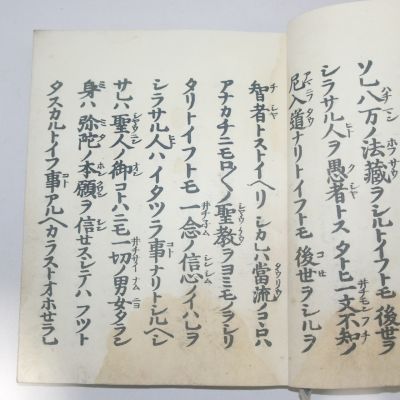 ソレ八万ノ法藏ヲシルトイフトモ後世ヲ
シラサル人ヲ愚者トスタトヒ一文不知ノ
尼入道ナリトイフトモ後世ヲシルヲ
智者トストイヘリシカレハ當流ノコヽロハ
アナカチニモロ〱ノ聖教ヲヨミモノヲシリ
タリトイフトモ一念ノ信心ノイハレヲ
シラサル人ハイタツラ事ナリトシルヘシ
サレハ聖人ノ御コトハニモ一切ノ男女タラン
身ハ弥陀ノ本願ヲ信セスシテハフツト
タスカルトイフ事アルヘカラストオホセラレ